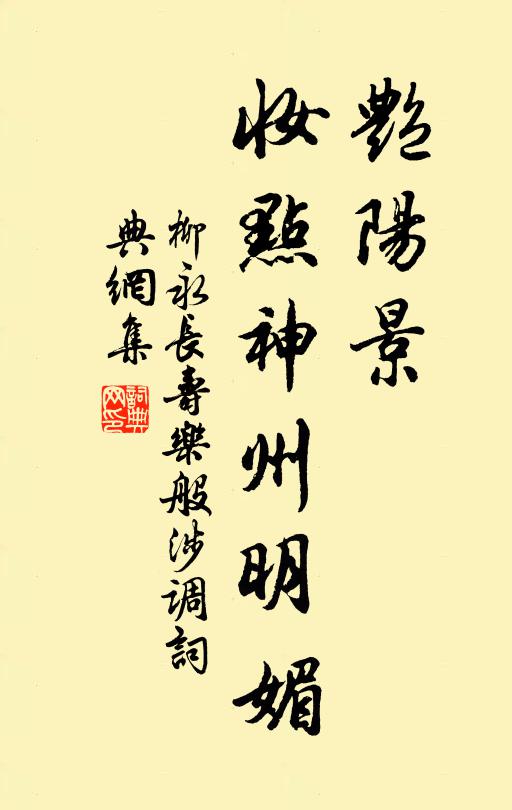 艷陽景
妝點神州明媚
柳永長壽樂般涉調詞
典網集
詞典网印